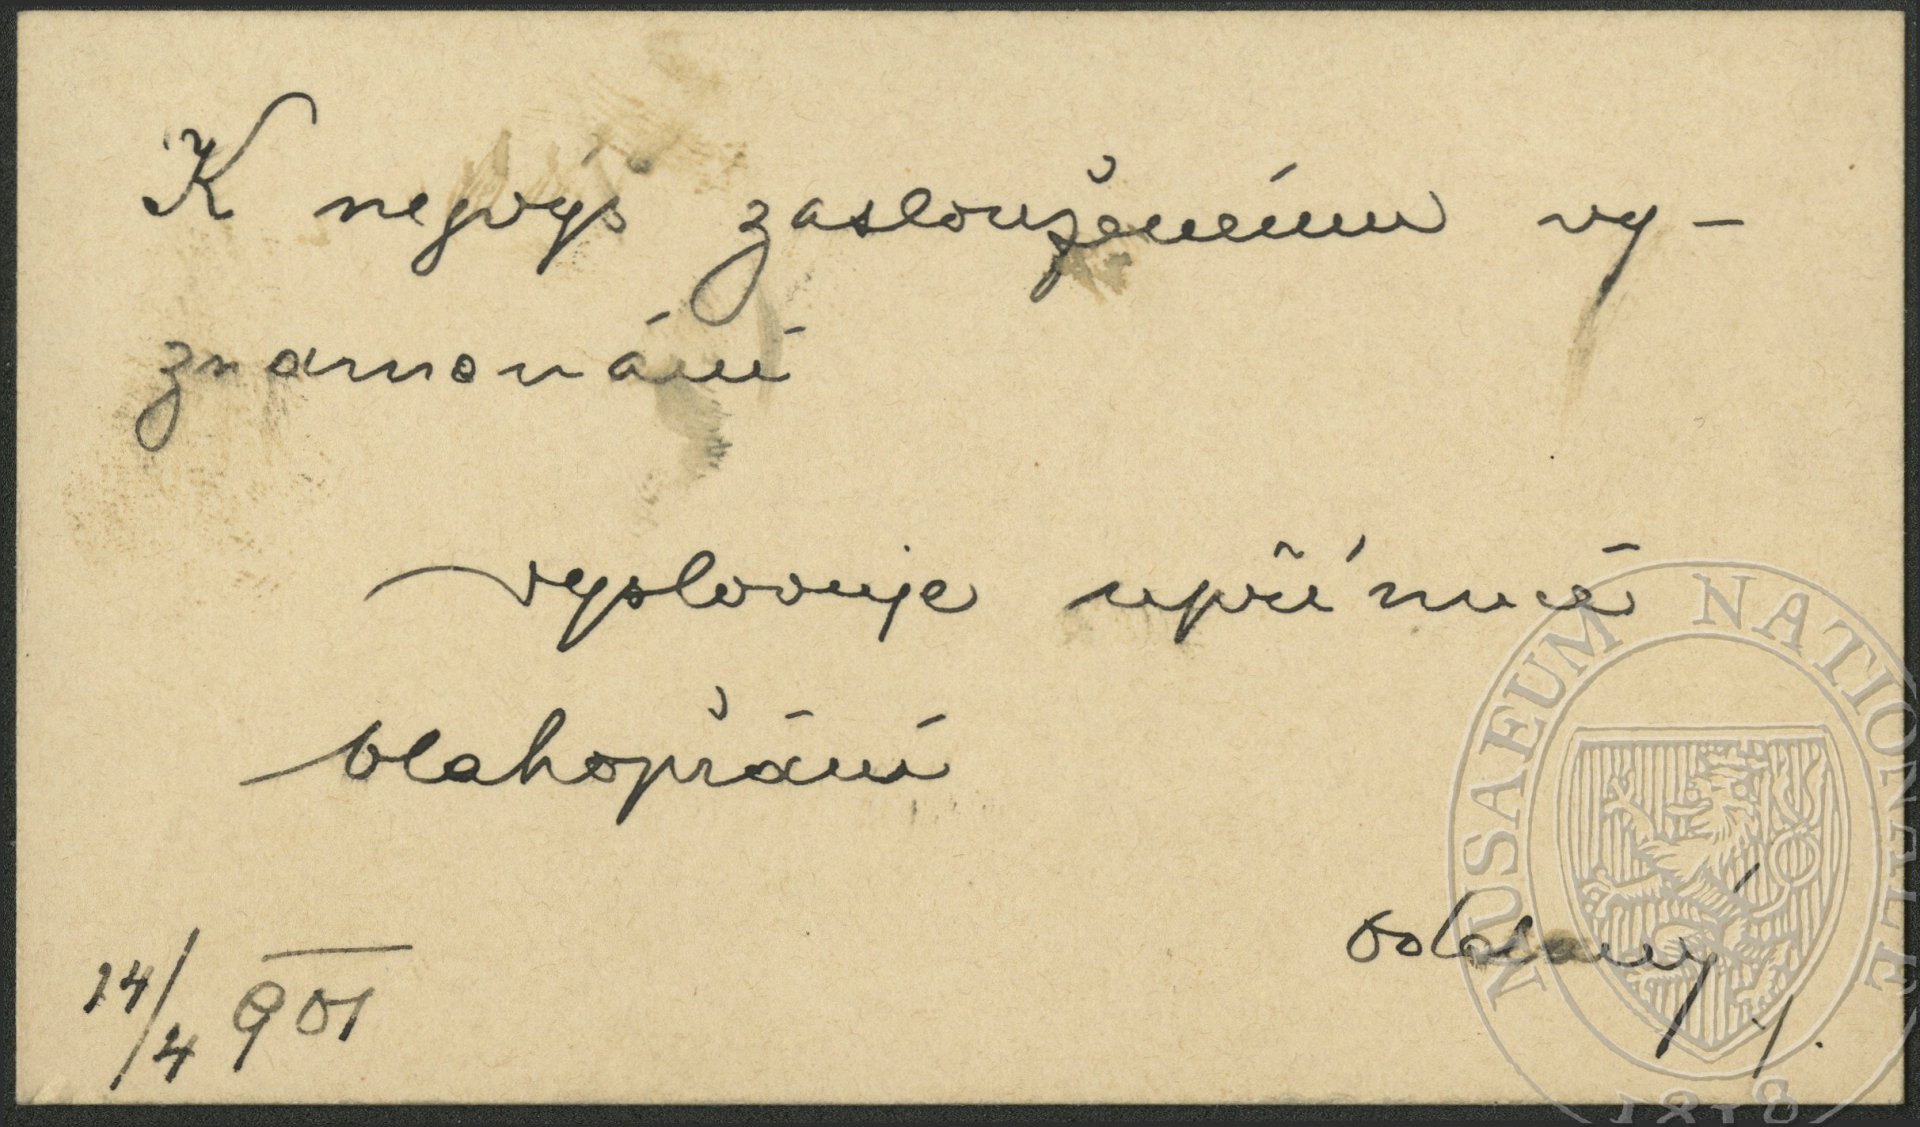 K nejvýš zaslouženému vy-
znamenání
vyslovuje upřímné
blahopřání
oddaný
14/4 901
MUSAEUM NATIONALE
1818